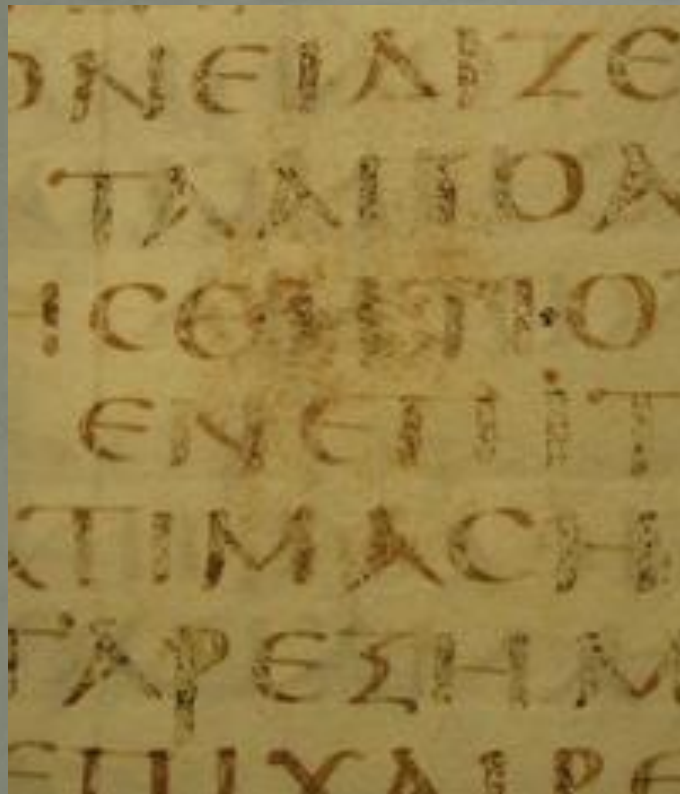 ΟΝΕΙΔΙΖΕ
ΤΑΑΠΟΑ
ΗCΘΗΤΙ·Ο
ΕΝΕΠΙΤ
ΑΤΙΜΑCΗ
ΓΑΡΕΞΗΜ
ΕΠΙΧΑΙΡΕ